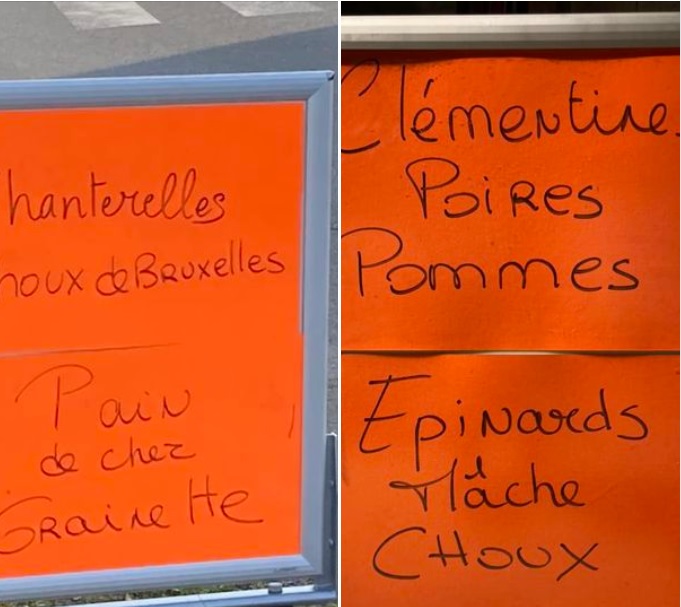 hanterelles
houx de Bruxelles
Pain
de chez
Grainette
Clémentine
Poires
Pommes
Epinards
Mâche
CHOUX